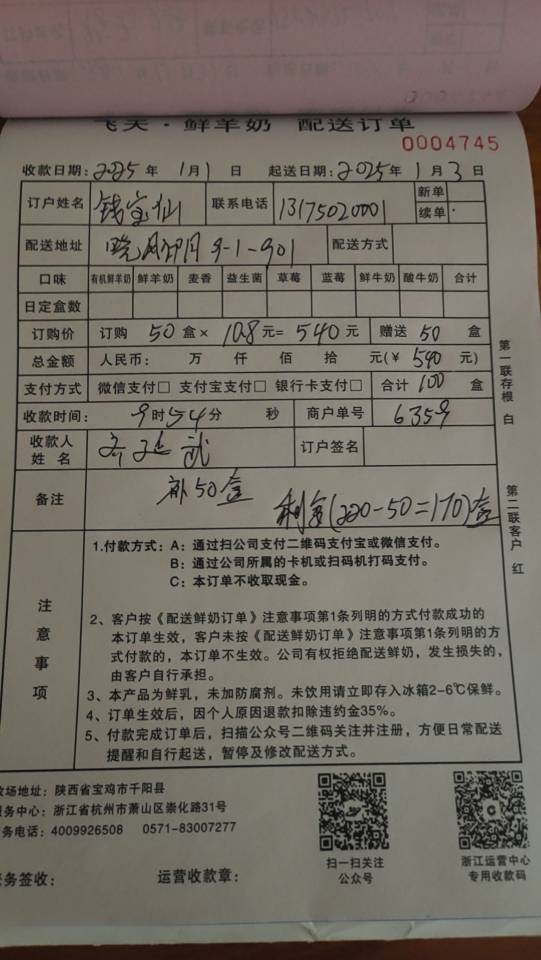 飞天·鲜羊奶 配送订单
0004745
收款日期:2025年1月1日 起送日期:2025年1月3日
订户姓名 钱宝仙 联系电话 13175020001 新单
续单
配送地址 9-1-901 配送方式
口味 有机鲜羊奶 鲜羊奶 麦香 益生菌 草莓 蓝莓 鲜牛奶 酸牛奶 合计
日定盒数
订购价 订购 50 盒× 10.8 元= 540 元 赠送 50 盒
总金额 人民币: 万 仟 佰 拾 元(¥ 540 元)
支付方式 微信支付□ 支付宝支付□ 银行卡支付□ 合计 100 盒
收款时间: 9时54分 秒 商户单号 6359
收款人
姓名 武 订户签名
备注 补50盒
剩余(220-50=170)盒
第一联存根 白
第二联客户 红
注意事项
1.付款方式:A:通过扫公司支付二维码支付宝或微信支付。
B:通过公司所属的卡机或扫码机打码支付。
C:本订单不收取现金。
2、客户按《配送鲜奶订单》注意事项第1条列明的方式付款成功的
本订单生效,客户未按《配送鲜奶订单》注意事项第1条列明的方
式付款的,本订单不生效。公司有权拒绝配送鲜奶,发生损失的,
由客户自行承担。
3、本产品为鲜乳,未加防腐剂。未饮用请立即存入冰箱2-6℃保鲜。
4、订单生效后,因个人原因退款扣除违约金35%。
5、付款完成订单后,扫描公众号二维码关注并注册,方便日常配送
提醒和自行起送,暂停及修改配送方式。
牧场地址:陕西省宝鸡市千阳县
服务中心:浙江省杭州市萧山区崇化路31号
服务电话:4009926508 0571-83007277
扫一扫关注
公众号
浙江运营中心
专用收款码
签收: 运营收款章: